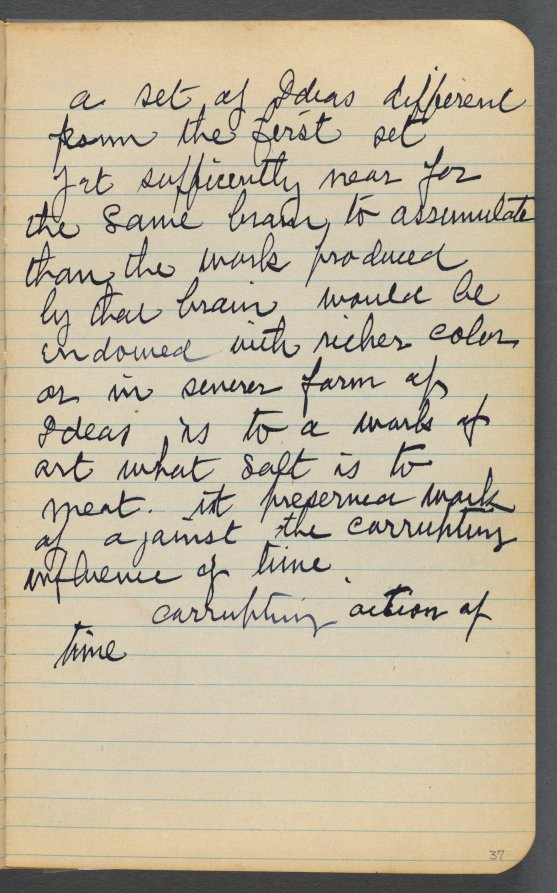 a set of Ideas different
from the first set
yet sufficently near for
the same brain to assumulate
than the work produced
by that brain would be
endowed with richer color
or in severer form of
Ideas is to a work of
art what salt is to
meat. it preserved work
of against the corrupting
influence of time
corrupting action of
time
37